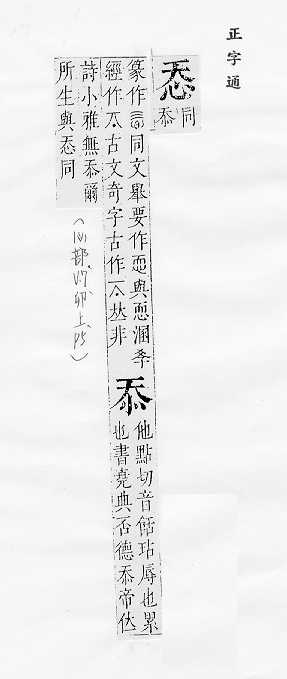 正字通
同
忝
篆作同文舉要作恧與恧溷季
經作古文奇字古作𠀘丛非
忝
他點切音餂玷辱也累
也書堯典否德忝帝位
詩小雅無忝爾
所生與同
卯上 P5)